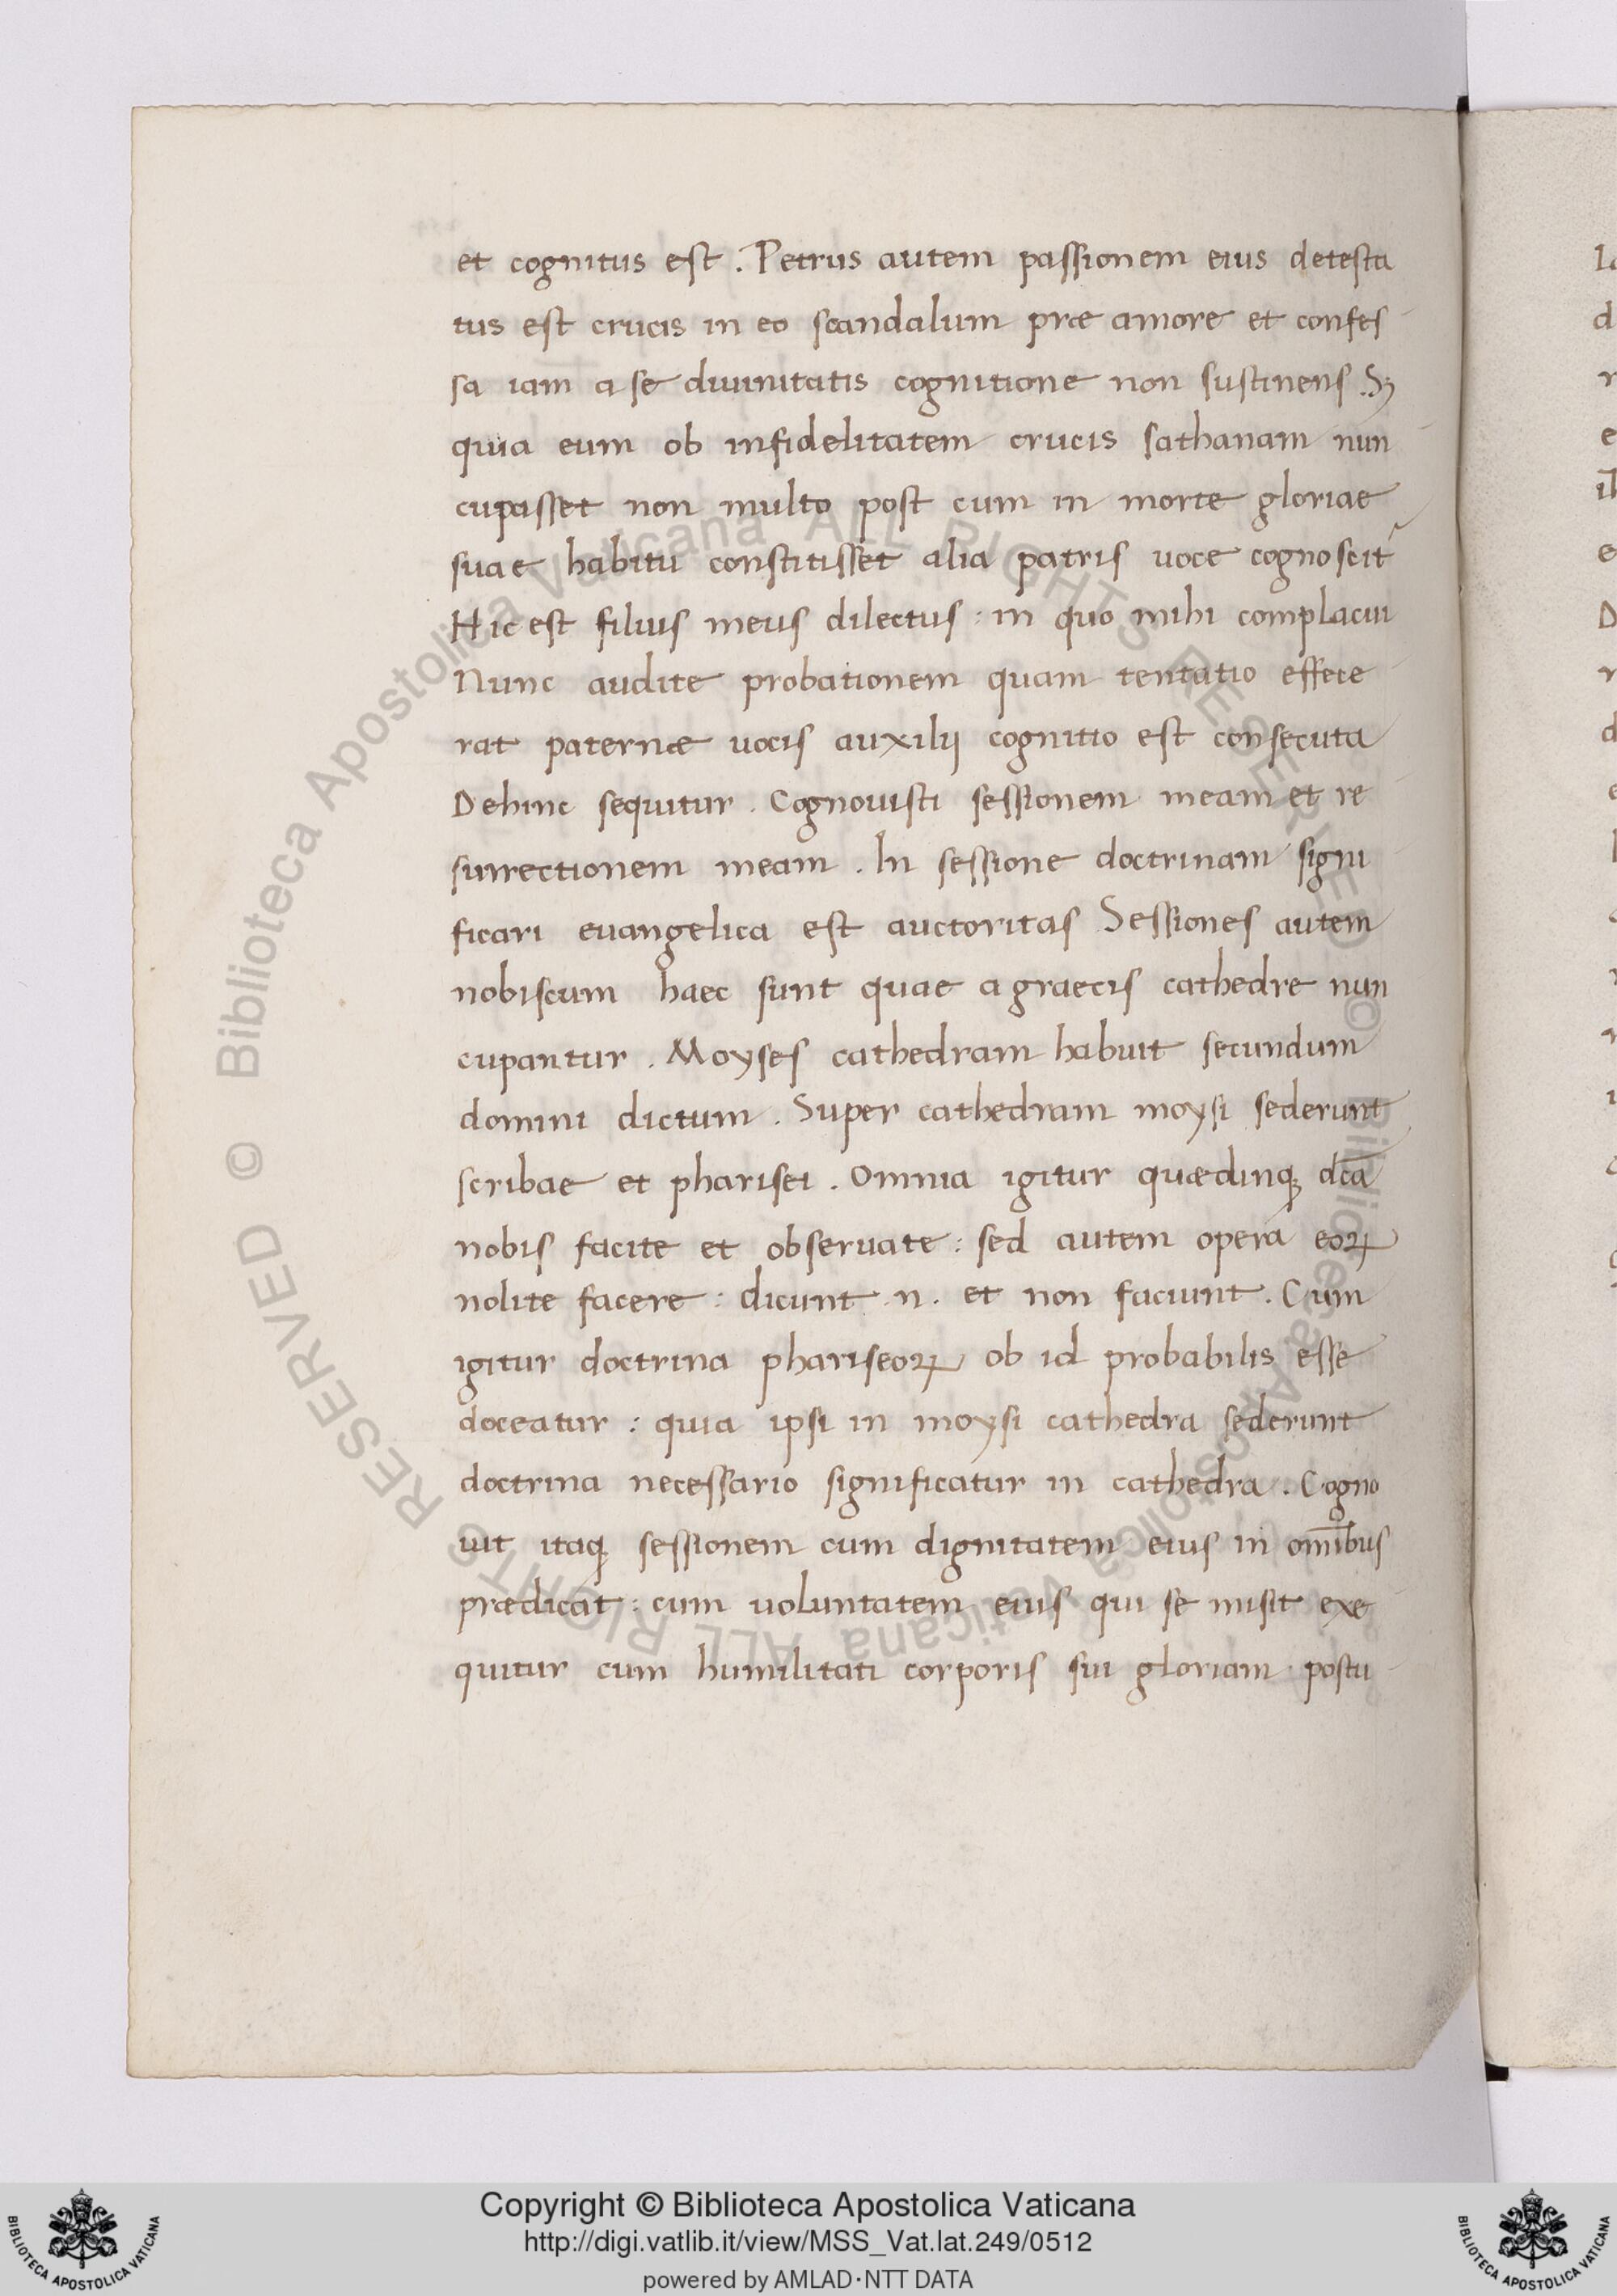 et cognitus est. Petrus autem passionem eius detesta
tus est crucis in eo scandalum præ amore et confes
sa iam a se diuinitatis cognitione non sustinens. Sꝫ
quia eum ob infidelitatem crucis sathanam nun
cupasset non multo post cum in morte gloriae
suae habitu constitisset alia patris uoce cognoscit᷑
Hic est filius meus dilectus: in quo mihi complacui
Nunc audite probationem quam tentatio effece
rat paternæ uocis auxilij cognitio est consecuta
Dehinc sequitur. Cognouisti sessionem meam et re
surrectionem meam. In sessione doctrinam signi
ficari euangelica est auctoritas Sessiones autem
nobiscum haec sunt quae a graecis cathedre nun
cupantur. Moyses cathedram habuit secundum
domini dictum. Super cathedram moysi sederunt
scribae et pharisei. Omnia igitur quædinqꝫ dc̄a
nobis facite et obseruate: sed autem opera eoꝝ
nolite facere: dicunt .n. et non faciunt. Cum
igitur doctrina phariseoꝝ ob id probabilis esse
doceatur: quia ipsi in moysi cathedra sederunt
doctrina necessario significatur in cathedra. Cogno
uit itaqꝫ sessionem cum dignitatem eius in om̄ibus
prædicat: cum uoluntatem eius qui se misit exe
quitur cum humilitati corporis sui gloriam postu
© Biblioteca Apostolica Vaticana ALL RIGHTS RESERVED © Biblioteca Apostolica Vaticana ALL RIGHTS RESERVED
Copyright © Biblioteca Apostolica Vaticana
http://digi.vatlib.it/view/MSS_Vat.lat.249/0512
powered by AMLAD·NTT DATA
BIBLIOTECA APOSTOLICA VATICANA
BIBLIOTECA APOSTOLICA VATICANA